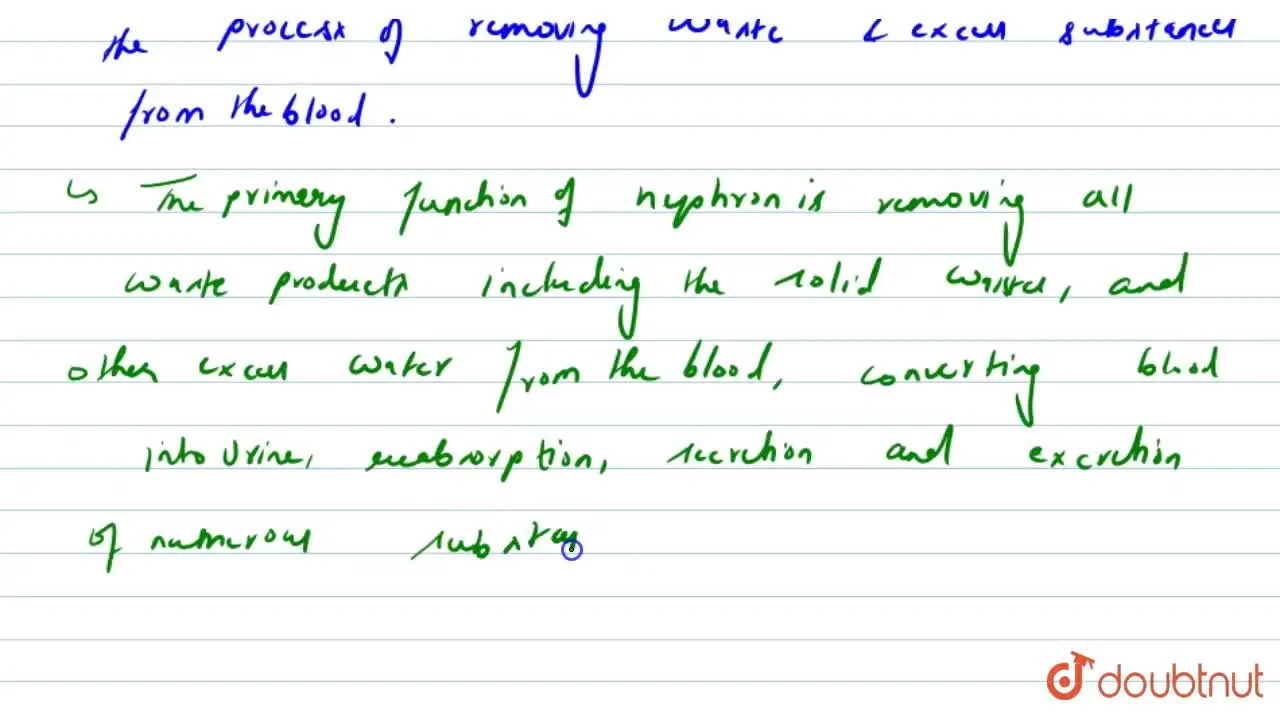 the process of removing waste & excess substances
from the blood.
↳ The primary function of nephron is removing all
waste products including the solid wastes, and
other excess water from the blood, converting blood
into urine, reabsorption, secretion and excretion
of numerous substan
doubtnut